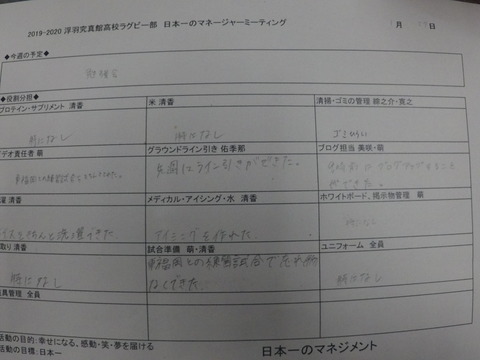 2019-2020 浮羽究真館高校ラグビー部 日本一のマネージャーミーティング
月
◆今週の予定◆
勉強会
◆役割分担◆
プロテイン・サプリメント 清香
米 清香
清掃・ゴミの管理 綾之介・寛之
特になし
特になし
ゴミひろい
デオ責任者 萌
グラウンドライン引き 佑季那
ブログ担当 美咲・萌
にライン引きができた。
できた。
濯 清香
メディカル・アイシング・水 清香
ホワイトボード、掲示物管理 萌
きちんと洗濯できた。
アイシングを作れた
取り 清香
試合準備 萌・清香
ユニフォーム 全員
特になし
東福岡との練習試合で忘れ物
なくできた。
特になし
具管理 全員
活動の目的: 幸せになる、感動・笑・夢を届ける
活動の目標: 日本一
日本一のマネジメント